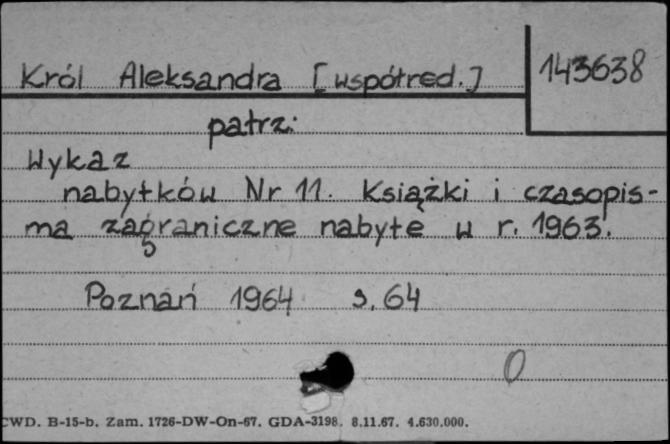 Król Aleksandra [współred.] 143638
patrz:
Wykaz
nabytków Nr 11. Książki i czasopis-
ma zagraniczne nabyte w r. 1963.
Poznań 1964 s. 64
0
CWD. B-15-b. Zam. 1726-DW-On-67. GDA-3198. 8.11.67. 4.630.000.